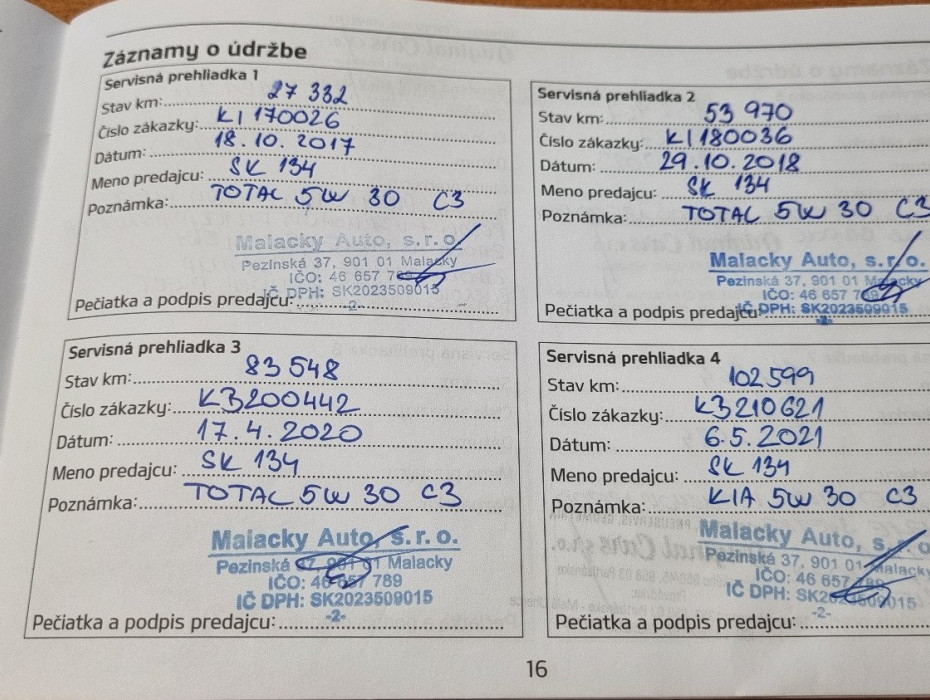 Záznamy o údržbe
Servisná prehliadka 1
Stav km: 27 332
Číslo zákazky: KI170026
Dátum: 18.10.2017
Meno predajcu: SK 134
Poznámka: TOTAL 5W 30 C3
Malacky Auto, s.r.o.
Pezinská 37, 901 01 Malacky
IČO: 46 657 789
IČ DPH: SK2023509015
-2-
Pečiatka a podpis predajcu:
Servisná prehliadka 2
Stav km: 53 970
Číslo zákazky: KI180036
Dátum: 29.10.2018
Meno predajcu: SK 134
Poznámka: TOTAL 5W 30 C3
Malacky Auto, s.r.o.
Pezinská 37, 901 01 Malacky
IČO: 46 657 789
IČ DPH: SK2023509015
-2-
Pečiatka a podpis predajcu:
Servisná prehliadka 3
Stav km: 83 548
Číslo zákazky: K3200442
Dátum: 17.4.2020
Meno predajcu: SK 134
Poznámka: TOTAL 5W 30 C3
Malacky Auto, s.r.o.
Pezinská 37, 901 01 Malacky
IČO: 46 657 789
IČ DPH: SK2023509015
-2-
Pečiatka a podpis predajcu:
Servisná prehliadka 4
Stav km: 102 599
Číslo zákazky: K3210621
Dátum: 6.5.2021
Meno predajcu: SK 134
Poznámka: KIA 5W 30 C3
Malacky Auto, s.r.o
Pezinská 37, 901 01 Malacky
IČO: 46 657 789
IČ DPH: SK2023509015
-2-
Pečiatka a podpis predajcu:
16